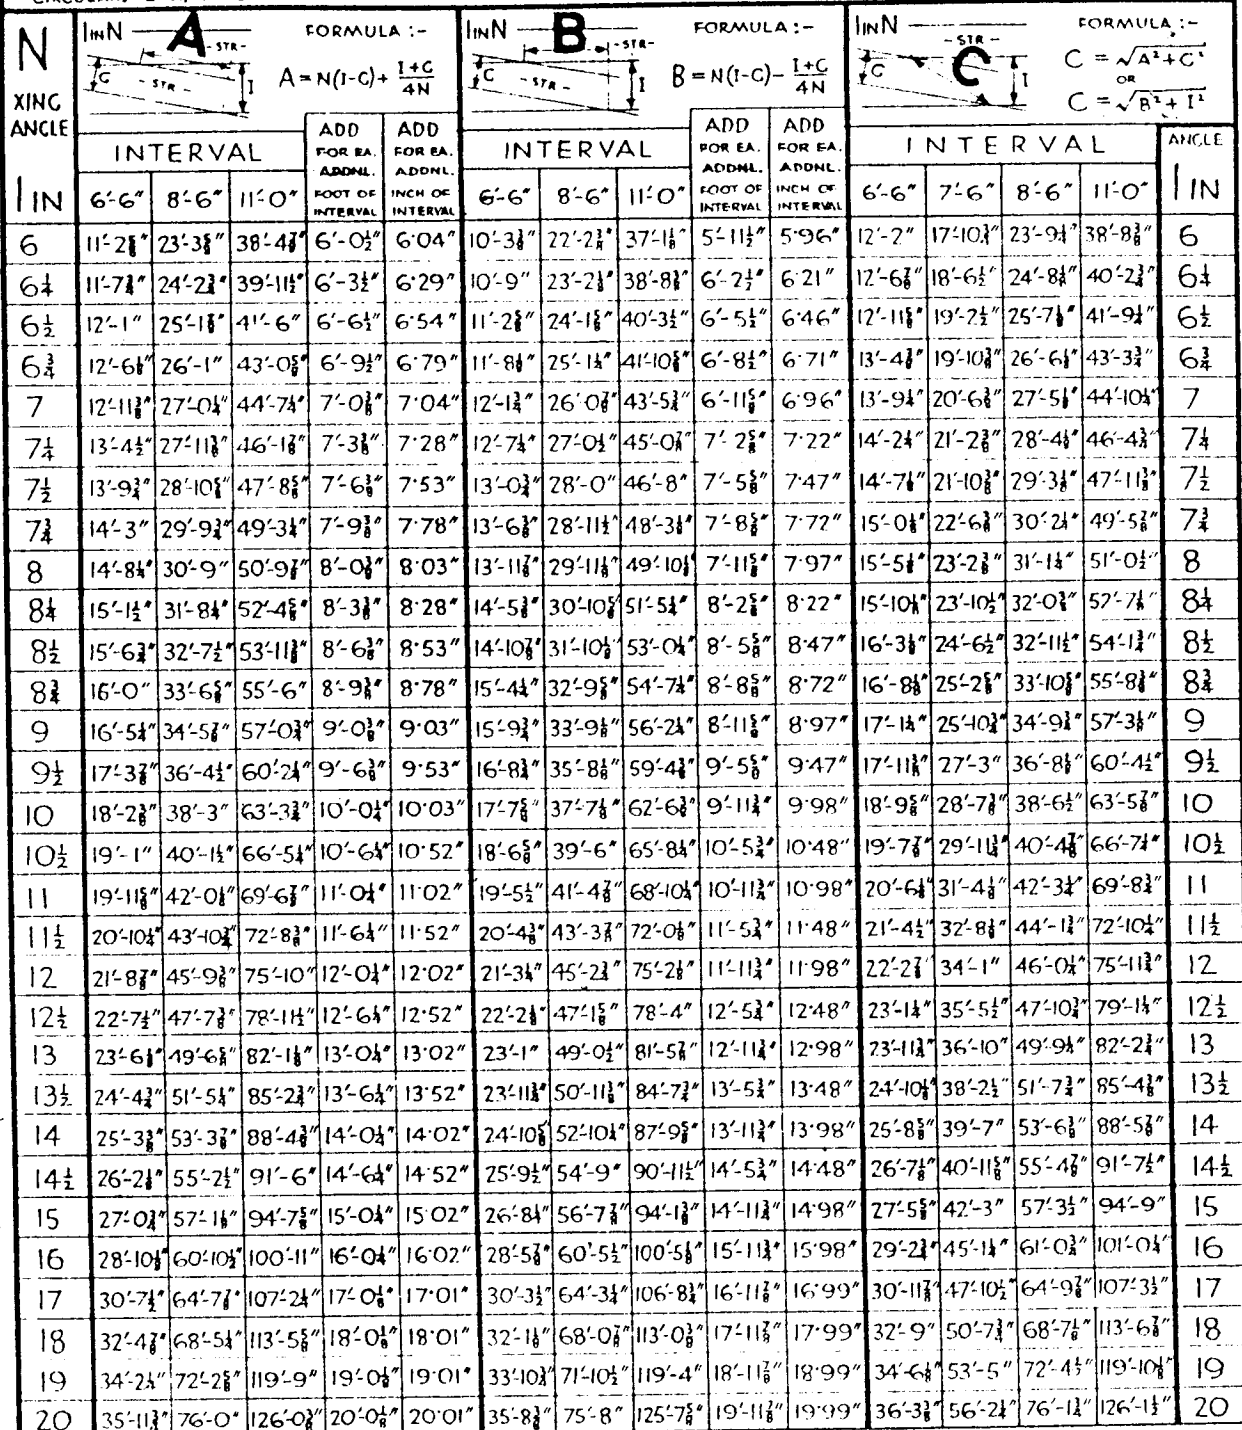 N
XING
ANGLE
1 IN
1 IN N
A
- STR -
G
- STR -
I
FORMULA :-
A = N(I-G) + (I+G)/4N
1 IN N
B
- STR -
G
- STR -
I
FORMULA :-
B = N(I-G) - (I+G)/4N
1 IN N
- STR -
C
G
I
FORMULA :-
C = √A²+G²
OR
C = √B²+I²
INTERVAL
ADD FOR EA. ADDNL. FOOT OF INTERVAL
ADD FOR EA. ADDNL. INCH OF INTERVAL
INTERVAL
ADD FOR EA. ADDNL. FOOT OF INTERVAL
ADD FOR EA. ADDNL. INCH OF INTERVAL
INTERVAL
ANGLE
1 IN
6'-6" 8'-6" 11'-0" 6'-6" 8'-6" 11'-0" 6'-6" 7'-6" 8'-6" 11'-0"
6 11'-2⅝" 23'-3⅝" 38'-4⅞" 6'-0½" 6·04" 10'-3⅜" 22'-2⅜" 37'-1⅛" 5'-11½" 5·96" 12'-2" 17'-10¾" 23'-9¼" 38'-8⅜" 6
6¼ 11'-7¾" 24'-2¾" 39'-11½" 6'-3½" 6·29" 10'-9" 23'-2⅛" 38'-8⅜" 6'-2½" 6·21" 12'-6⅞" 18'-6½" 24'-8⅛" 40'-2¾" 6¼
6½ 12'-1" 25'-1⅞" 41'-6" 6'-6½" 6·54" 11'-2⅝" 24'-1⅝" 40'-3½" 6'-5½" 6·46" 12'-11⅝" 19'-2½" 25'-7⅛" 41'-9¼" 6½
6¾ 12'-6⅛" 26'-1" 43'-0⅝" 6'-9½" 6·79" 11'-8⅛" 25'-1¼" 41'-10⅝" 6'-8½" 6·71" 13'-4⅜" 19'-10⅜" 26'-6⅛" 43'-3¾" 6¾
7 12'-11⅜" 27'-0¼" 44'-7¼" 7'-0⅜" 7·04" 12'-1¾" 26'-0⅞" 43'-5¾" 6'-11⅝" 6·96" 13'-9¼" 20'-6⅜" 27'-5⅛" 44'-10¼" 7
7¼ 13'-4½" 27'-11⅜" 46'-1⅞" 7'-3⅜" 7·28" 12'-7¼" 27'-0½" 45'-0⅞" 7'-2⅝" 7·22" 14'-2¼" 21'-2⅜" 28'-4⅛" 46'-4¾" 7¼
7½ 13'-9¾" 28'-10⅝" 47'-8⅝" 7'-6⅜" 7·53" 13'-0¾" 28'-0" 46'-8" 7'-5⅝" 7·47" 14'-7⅛" 21'-10⅜" 29'-3⅛" 47'-11⅜" 7½
7¾ 14'-3" 29'-9¾" 49'-3¼" 7'-9⅜" 7·78" 13'-6⅜" 28'-11½" 48'-3⅛" 7'-8⅝" 7·72" 15'-0⅛" 22'-6⅜" 30'-2¼" 49'-5⅞" 7¾
8 14'-8¼" 30'-9" 50'-9⅞" 8'-0⅜" 8·03" 13'-11⅞" 29'-11⅛" 49'-10⅛" 7'-11⅝" 7·97" 15'-5⅛" 23'-2⅜" 31'-1¼" 51'-0½" 8
8¼ 15'-1½" 31'-8¼" 52'-4⅝" 8'-3⅜" 8·28" 14'-5⅜" 30'-10⅝" 51'-5¼" 8'-2⅝" 8·22" 15'-10⅛" 23'-10½" 32'-0⅜" 52'-7⅛" 8¼
8½ 15'-6¾" 32'-7½" 53'-11⅜" 8'-6⅜" 8·53" 14'-10⅞" 31'-10⅛" 53'-0¼" 8'-5⅝" 8·47" 16'-3⅛" 24'-6½" 32'-11½" 54'-1¾" 8½
8¾ 16'-0" 33'-6⅝" 55'-6" 8'-9⅜" 8·78" 15'-4¼" 32'-9⅝" 54'-7¼" 8'-8⅝" 8·72" 16'-8⅛" 25'-2⅝" 33'-10⅝" 55'-8⅜" 8¾
9 16'-5¼" 34'-5⅞" 57'-0¾" 9'-0⅜" 9·03" 15'-9¾" 33'-9⅛" 56'-2¼" 8'-11⅝" 8·97" 17'-1¼" 25'-10¾" 34'-9¾" 57'-3⅛" 9
9½ 17'-3⅞" 36'-4½" 60'-2¼" 9'-6⅜" 9·53" 16'-8¾" 35'-8⅛" 59'-4⅜" 9'-5⅝" 9·47" 17'-11⅜" 27'-3" 36'-8⅛" 60'-4½" 9½
10 18'-2⅜" 38'-3" 63'-3¾" 10'-0¼" 10·03" 17'-7⅝" 37'-7⅛" 62'-6⅜" 9'-11¾" 9·98" 18'-9⅝" 28'-7⅜" 38'-6½" 63'-5⅞" 10
10½ 19'-1" 40'-1½" 66'-5¼" 10'-6¼" 10·52" 18'-6⅝" 39'-6" 65'-8¼" 10'-5¾" 10·48" 19'-7⅞" 29'-11¾" 40'-4⅞" 66'-7¼" 10½
11 19'-11⅝" 42'-0⅛" 69'-6⅞" 11'-0¼" 11·02" 19'-5½" 41'-4⅞" 68'-10¼" 10'-11¾" 10·98" 20'-6¼" 31'-4⅛" 42'-3¼" 69'-8¾" 11
11½ 20'-10¼" 43'-10¾" 72'-8⅜" 11'-6¼" 11·52" 20'-4⅜" 43'-3⅞" 72'-0⅛" 11'-5¾" 11·48" 21'-4½" 32'-8⅛" 44'-1¾" 72'-10¼" 11½
12 21'-8⅞" 45'-9⅜" 75'-10" 12'-0¼" 12·02" 21'-3¼" 45'-2¾" 75'-2⅛" 11'-11¾" 11·98" 22'-2⅞" 34'-1" 46'-0¼" 75'-11¾" 12
12½ 22'-7½" 47'-7⅞" 78'-11½" 12'-6¼" 12·52" 22'-2⅛" 47'-1⅝" 78'-4" 12'-5¾" 12·48" 23'-1¼" 35'-5½" 47'-10¾" 79'-1¼" 12½
13 23'-6⅛" 49'-6⅜" 82'-1⅛" 13'-0¼" 13·02" 23'-1" 49'-0½" 81'-5⅞" 12'-11¾" 12·98" 23'-11¾" 36'-10" 49'-9¼" 82'-2¾" 13
13½ 24'-4¾" 51'-5¼" 85'-2¾" 13'-6¼" 13·52" 23'-11¾" 50'-11⅜" 84'-7¾" 13'-5¾" 13·48" 24'-10⅛" 38'-2½" 51'-7¾" 85'-4⅜" 13½
14 25'-3⅜" 53'-3⅞" 88'-4⅜" 14'-0¼" 14·02" 24'-10⅝" 52'-10¼" 87'-9⅝" 13'-11¾" 13·98" 25'-8⅝" 39'-7" 53'-6⅜" 88'-5⅞" 14
14½ 26'-2⅛" 55'-2½" 91'-6" 14'-6¼" 14·52" 25'-9½" 54'-9" 90'-11½" 14'-5¾" 14·48" 26'-7⅛" 40'-11⅝" 55'-4⅞" 91'-7½" 14½
15 27'-0¾" 57'-1⅛" 94'-7⅝" 15'-0¼" 15·02" 26'-8¼" 56'-7⅞" 94'-1⅜" 14'-11¾" 14·98" 27'-5⅝" 42'-3" 57'-3½" 94'-9" 15
16 28'-10⅛" 60'-10½" 100'-11" 16'-0¼" 16·02" 28'-5⅞" 60'-5½" 100'-5⅛" 15'-11¾" 15·98" 29'-2¾" 45'-1¼" 61'-0¾" 101'-0¼" 16
17 30'-7½" 64'-7⅞" 107'-2¼" 17'-0⅛" 17·01" 30'-3½" 64'-3¼" 106'-8¾" 16'-11⅞" 16·99" 30'-11⅞" 47'-10½" 64'-9⅞" 107'-3½" 17
18 32'-4⅞" 68'-5¼" 113'-5⅝" 18'-0⅛" 18·01" 32'-1⅛" 68'-0⅞" 113'-0⅜" 17'-11⅞" 17·99" 32'-9" 50'-7¾" 68'-7⅛" 113'-6⅞" 18
19 34'-2¼" 72'-2⅝" 119'-9" 19'-0⅛" 19·01" 33'-10¾" 71'-10½" 119'-4" 18'-11⅞" 18·99" 34'-6⅛" 53'-5" 72'-4½" 119'-10⅛" 19
20 35'-11¾" 76'-0" 126'-0⅜" 20'-0⅛" 20·01" 35'-8⅜" 75'-8" 125'-7⅝" 19'-11⅞" 19·99" 36'-3⅜" 56'-2¼" 76'-1¾" 126'-1½" 20